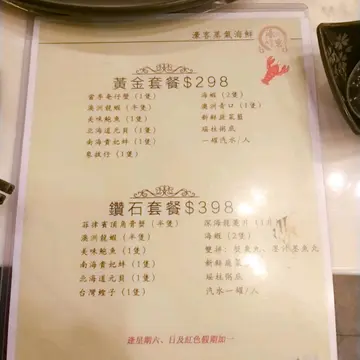 濠客蒸氣海鮮
黃金套餐$298
當季奄仔蟹 (1隻)
澳洲龍蝦 (半隻)
美味鮑魚 (1隻)
北海道元貝 (1隻)
南海貴妃蚌 (1隻)
象拔仔 (1隻)
海蝦 (2隻)
澳洲青口 (1隻)
新鮮蔬菜籃
瑤柱粥底
一罐汽水/人
鑽石套餐$398
菲律賓頂角膏蟹 (半隻)
澳洲龍蝦 (半隻)
美味鮑魚 (1隻)
南海貴妃蚌 (1隻)
北海道元貝 (1隻)
台灣蟶子 (1隻)
深海龍躉片
海蝦 (2隻)
雙拼:
新鮮蔬菜
瑤柱粥底
汽水一罐/人
逢星期六、日及紅色假期加一